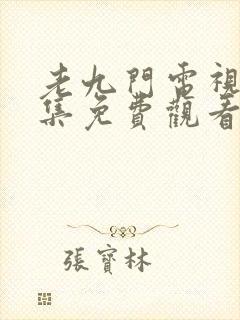 老九門電視
集免費觀看
張寶林